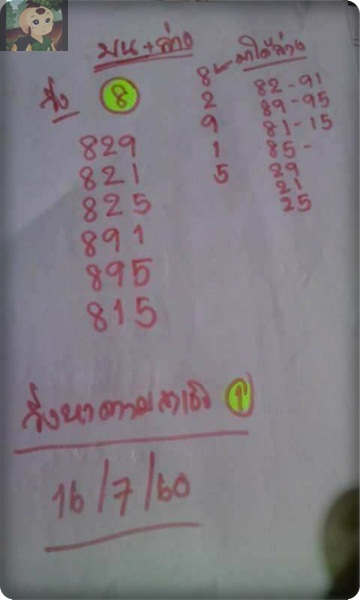 บน+ล่าง
วิ่ง 8
829
821
825
891
895
815
8
2
9
1
5
มาได้ล่าง
82-91
89-95
81-15
85-
29
21
25
วิ่งหาตาม 1
16/7/60